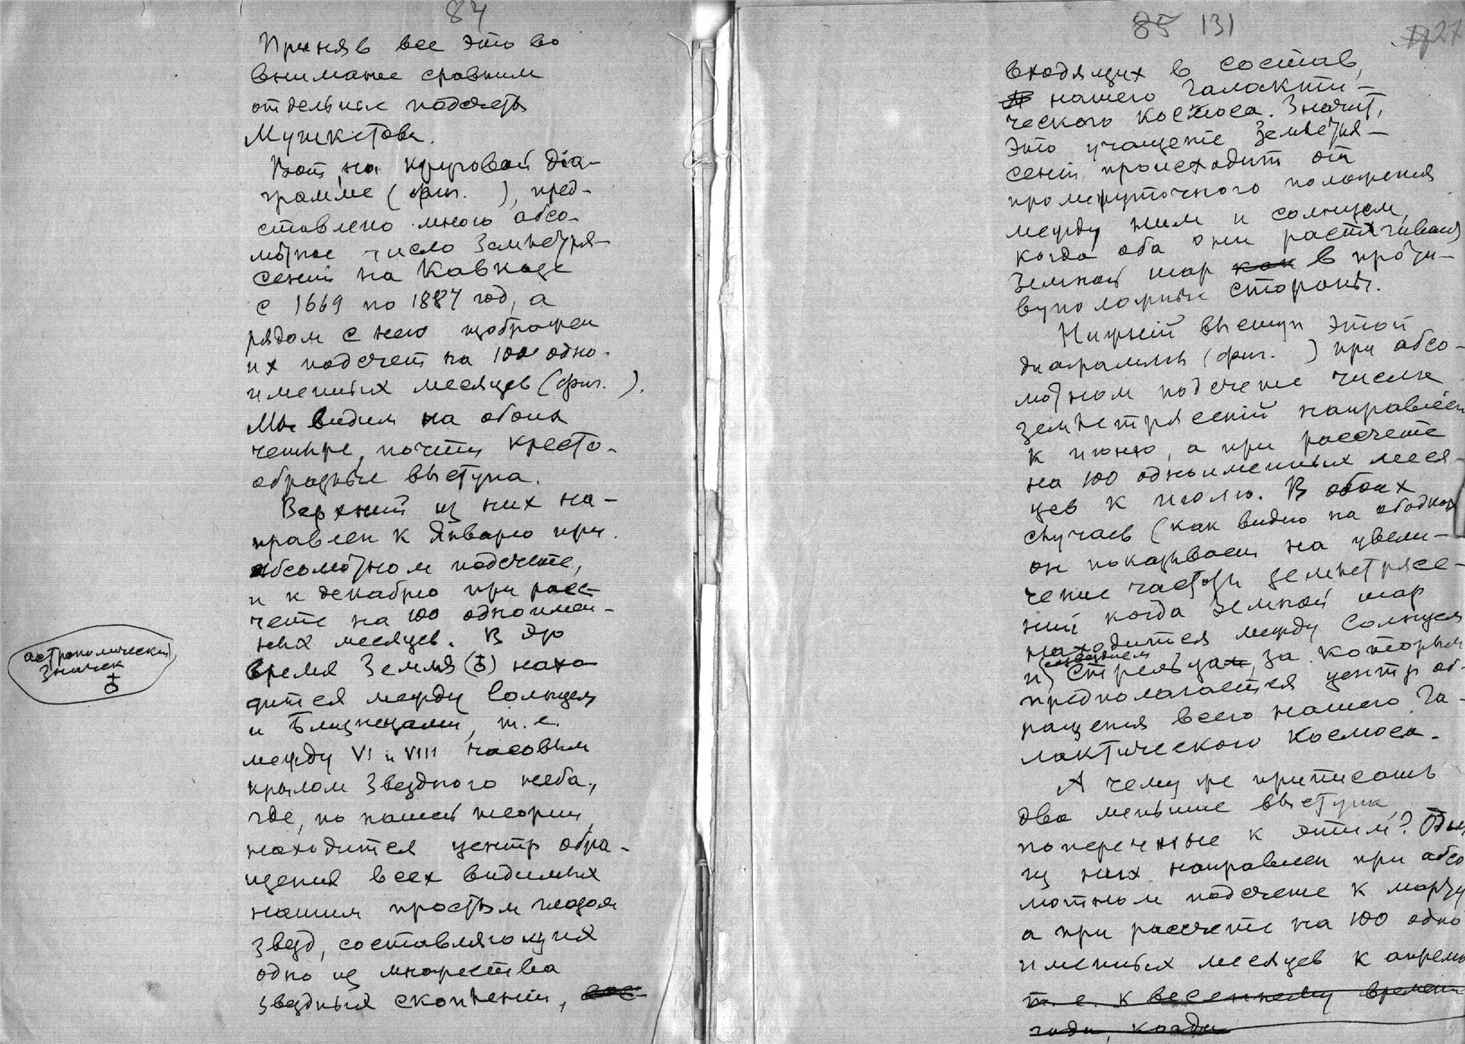 84
Приняв все это во
внимание сравним
отдельные подсчеты
Мушкетова.
Вот, на круговой диа-
грамме (фиг. ), пред-
ставлено много абсо-
лютное число Землетря-
сений на Кавказе
с 1669 по 1887 год, а
рядом с нею изображен
их подсчет на 100 одно-
именных месяцев (фиг. ).
Мы видим на обоих
четыре, почти кресто-
образные выступа.
Верхний из них на-
правлен к Январю при
абсолютном подсчете,
и к декабрю при расс-
чете на 100 одноимен-
ных месяцев. В это
время Земля (♁) нахо
дится между Солнцем
и Близнецами, т. е.
между VI и VIII часовым
крылом Звездного неба,
где, по нашей теории,
находится центр обра-
щения всех видимых
нашим простым глазом
звезд, составляющих
одно из множества
звездных скоплений,
астрономический
значек
♁
85 131
27
входящих в состав,
нашего Галакти-
ческого космоса. Значит,
это учащение Землетря-
сений происходит от
промежуточного положения
между ним и солнцем,
когда оба они растягивают
Земной шар как в проти-
вуположные стороны.
Нижний выступ этой
диаграммы (фиг. ) при абсо-
лютном подсчете числа
землетрясений направлен
к июню, а при рассчете
на 100 одноименных меся-
цев к июлю. В обоих
случаях (как видно на ободках
он показывает на увели-
чение частоты землетрясе-
ний когда Земной шар
находится между Солнцем
и созвездием
Стрельца, за которым
предполагается центр об-
ращения всего нашего Га-
лактического Космоса.
А чему же приписать
два меньшие выступа
поперечные к этим? Один
из них направлен при абсо
лютном подсчете к марту
а при рассчете на 100 одно
именных месяцев к апрелю
т. е. к весеннему времени
года, когда